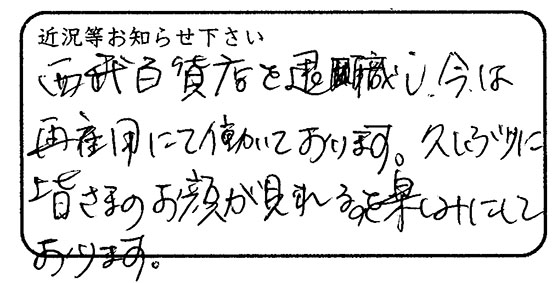 近況等お知らせ下さい
西武百貨店を退職し、今は
再雇用にて働いております。久しぶりに
皆さまのお顔が見れるを楽しみにして
おります。